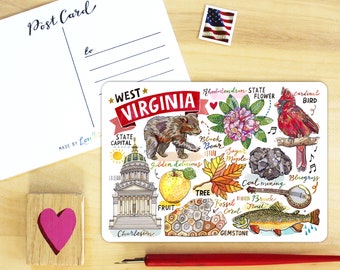 Post Card
to
MADE BY
WEST
VIRGINIA
STATE
CAPITAL
Charleston
Black
Bear
Rhododendron
STATE
FLOWER
Cardinal
BIRD
Golden delicious
FRUIT
Sugar
Maple
TREE
Coal mining
Bluegrass
Fossil
Coral
GEMSTONE
Brook
Trout